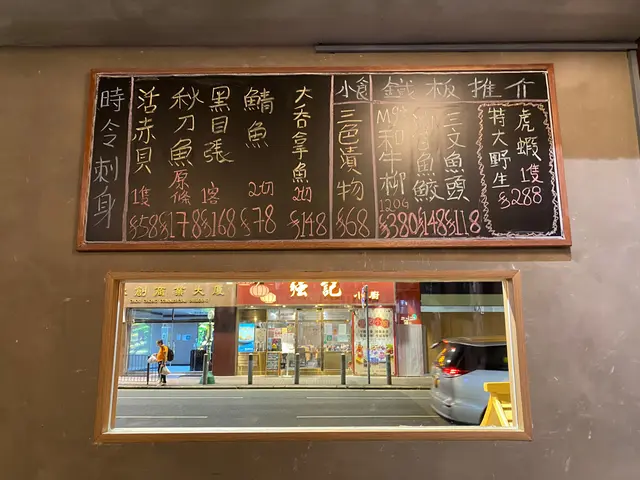 時令刺身
活赤貝
1隻
$58
秋刀魚
原條
$178
黑目張
1客
$168
鯖魚
2切
$78
大吞拿魚
2切
$148
小食
三色漬物
$68
鐵板推介
M9+和牛柳
120g
$380
$148
三文魚頭
$118
特大野生
虎蝦
1隻
$288
商業大廈
強記
小廚